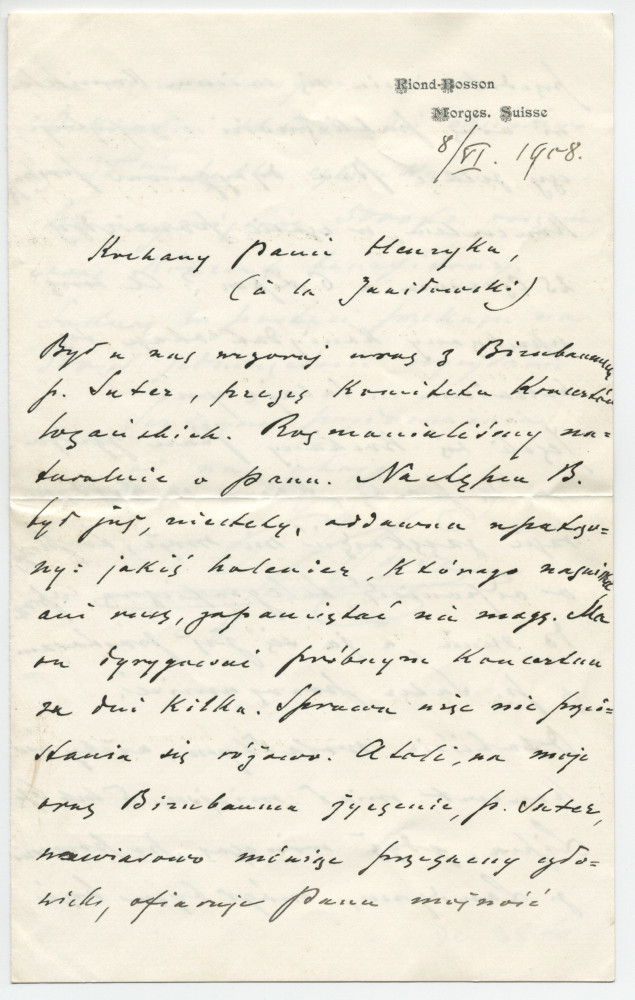 Riond-Bosson
Morges. Suisse
8/VI. 1908.
Kochany Panie Henryku,
(à la
Był u nas wczoraj wraz z Birnbaumem
p. Suter, prezes Komitetu Koncertów
lozańskich. Rozmawialiśmy na=
turalnie o Panu. Następca B.
był już, niestety, oddawna upatrzo-
ny: jakiś holender, którego nazwiska
ani rusz, zapamiętać nie mogę. Ma
on dyrygować próbnym Koncertem
za dni kilka. Sprawa więc nie przed-
stawia się różowo. Atoli, na moje
oraz Birnbauma życzenie, p. Suter,
nawiasowo mówiąc przezacny czło-
wiek, ofiaruje Panu możność